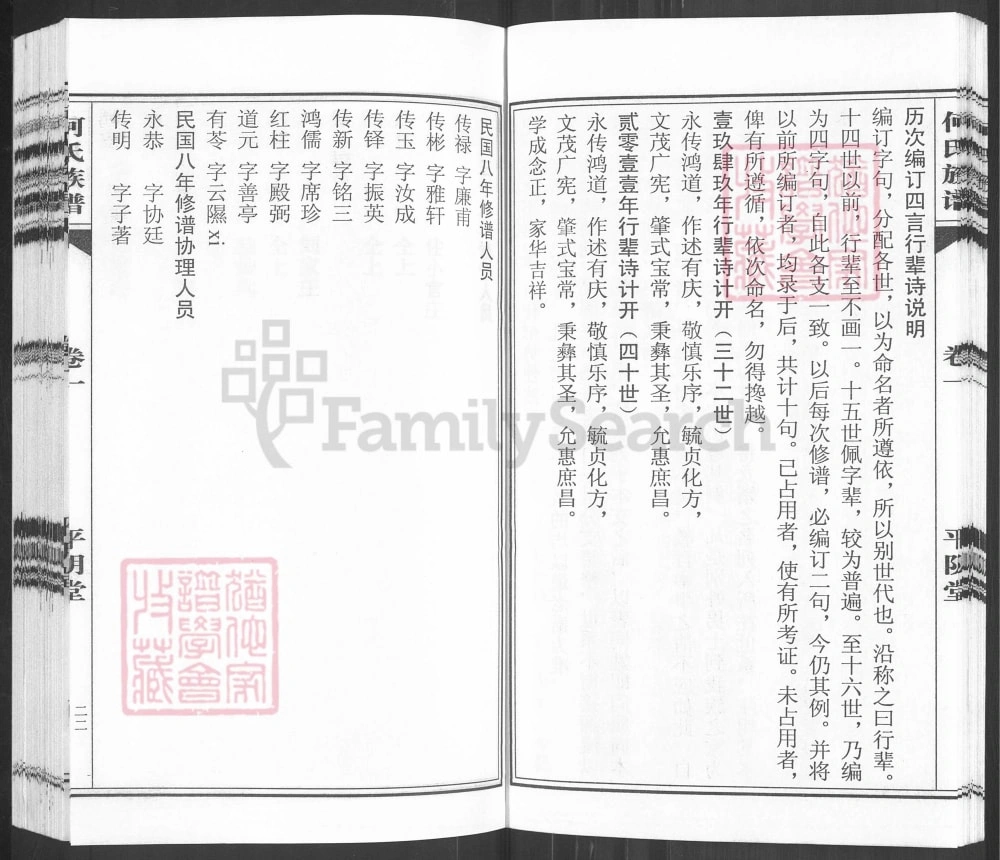 何氏族谱 卷一 平阴堂
历次编订四言行辈诗说明
编订字句，分配各世，以为命名者所遵依，所以别世代也。沿称之曰行辈。
十四世以前，行辈至不画一。十五世佩字辈，较为普遍。至十六世，乃编
为四字句，自此各支一致。以后每次修谱，必编订二句，今仍其例。并将
以前所编订者，均录于后，共计十句。已占用者，使有所考证。未占用者，
俾有所遵循，依次命名，勿得搀越。
壹玖肆玖年行辈诗计开（三十二世）
永传鸿道，作述有庆，敬慎乐序，毓贞化方，
文茂广宪，肇式宝常，秉彝其圣，允惠庶昌。
贰零壹壹年行辈诗计开（四十世）
永传鸿道，作述有庆，敬慎乐序，毓贞化方，
文茂广宪，肇式宝常，秉彝其圣，允惠庶昌。
学成念正，家华吉祥。
民国八年修谱人员
传禄 字廉甫
传彬 字雅轩
传玉 字汝成
传铎 字振英
传新 字铭三
鸿儒 字席珍
红柱 字殿弼
道元 字善亭
有苓 字云隰xi
民国八年修谱协理人员
永恭 字协廷
传明 字子著
何氏族谱 卷一 平阴堂 二二
FamilySearch
犹他家谱学会收藏